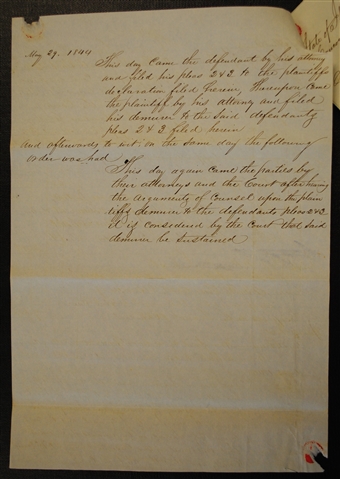 May 29. 1844
This day came the defendant by his attorney
and filed his pleas 2&3 to the plaintiffs
declaration filed herein, Thereupon Came
the plaintiff by his attorney and filed
his demurer to the said defendants
pleas 2 & 3 filed herein
And afterwards to wit: on the same day the following
order was had
This day again came the parties by
their attorneys and the Court after hearing
the arguments of Counsel upon the plain
tiffs demurer to the defendants pleas 2&3
it is considered by the Court that said
demurer be sustained